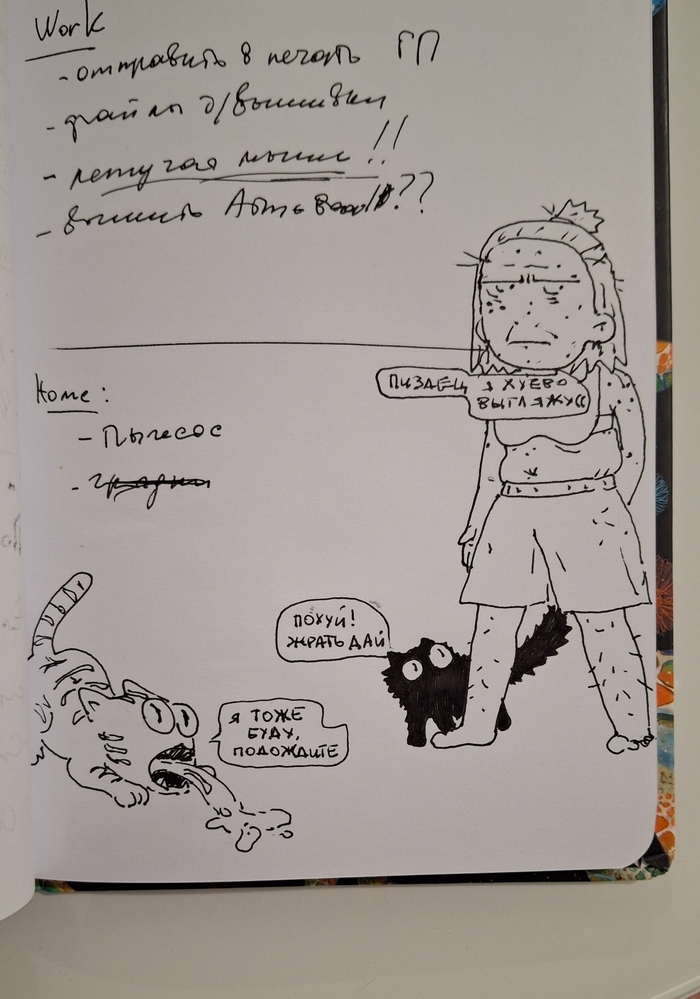 Work
- отправить в печать ГП
- файлы д/вышивки
- летучая мышь!!
- вышить ??
Home:
- Пылесос
-
ПИЗДЕЦ Я ХУЕВО
ВЫГЛЯЖУ((
ПОХУЙ!
ЖРАТЬ ДАЙ
Я ТОЖЕ
БУДУ,
ПОДОЖДИТЕ